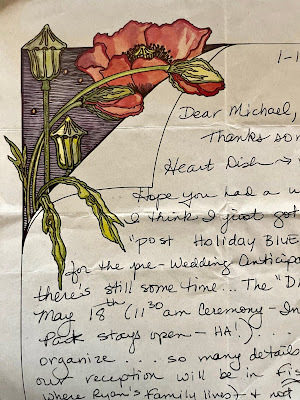 1-1
Dear Michael,
Thanks so
Heart Dish →
Hope you had a w
I think I just got
"post Holiday Blue
for the pre-Wedding Anticipa
there's still some time... The "D
May 18th (11:30 am Ceremony - In
Park stays open - HA!)...
organize.... so many details
our reception will be in Fis
where Ryan's family lives) & not